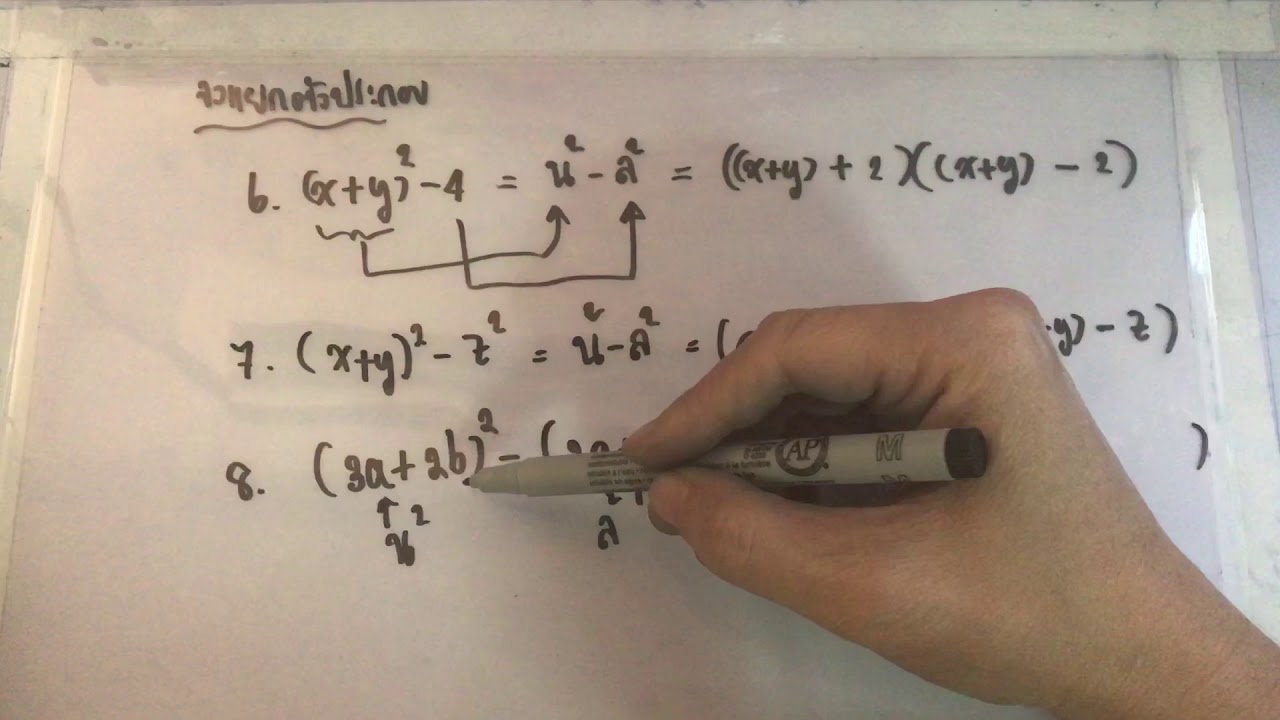 จงแยกตัวประกอบ
6. (x+y)² - 4 = น² - ล² = ((x+y) + 2)((x+y) - 2)
7. (x+y)² - z² = น² - ล² = ( y) - z)
8. (3a + 2b)² - ( )
น² ล²
AP M